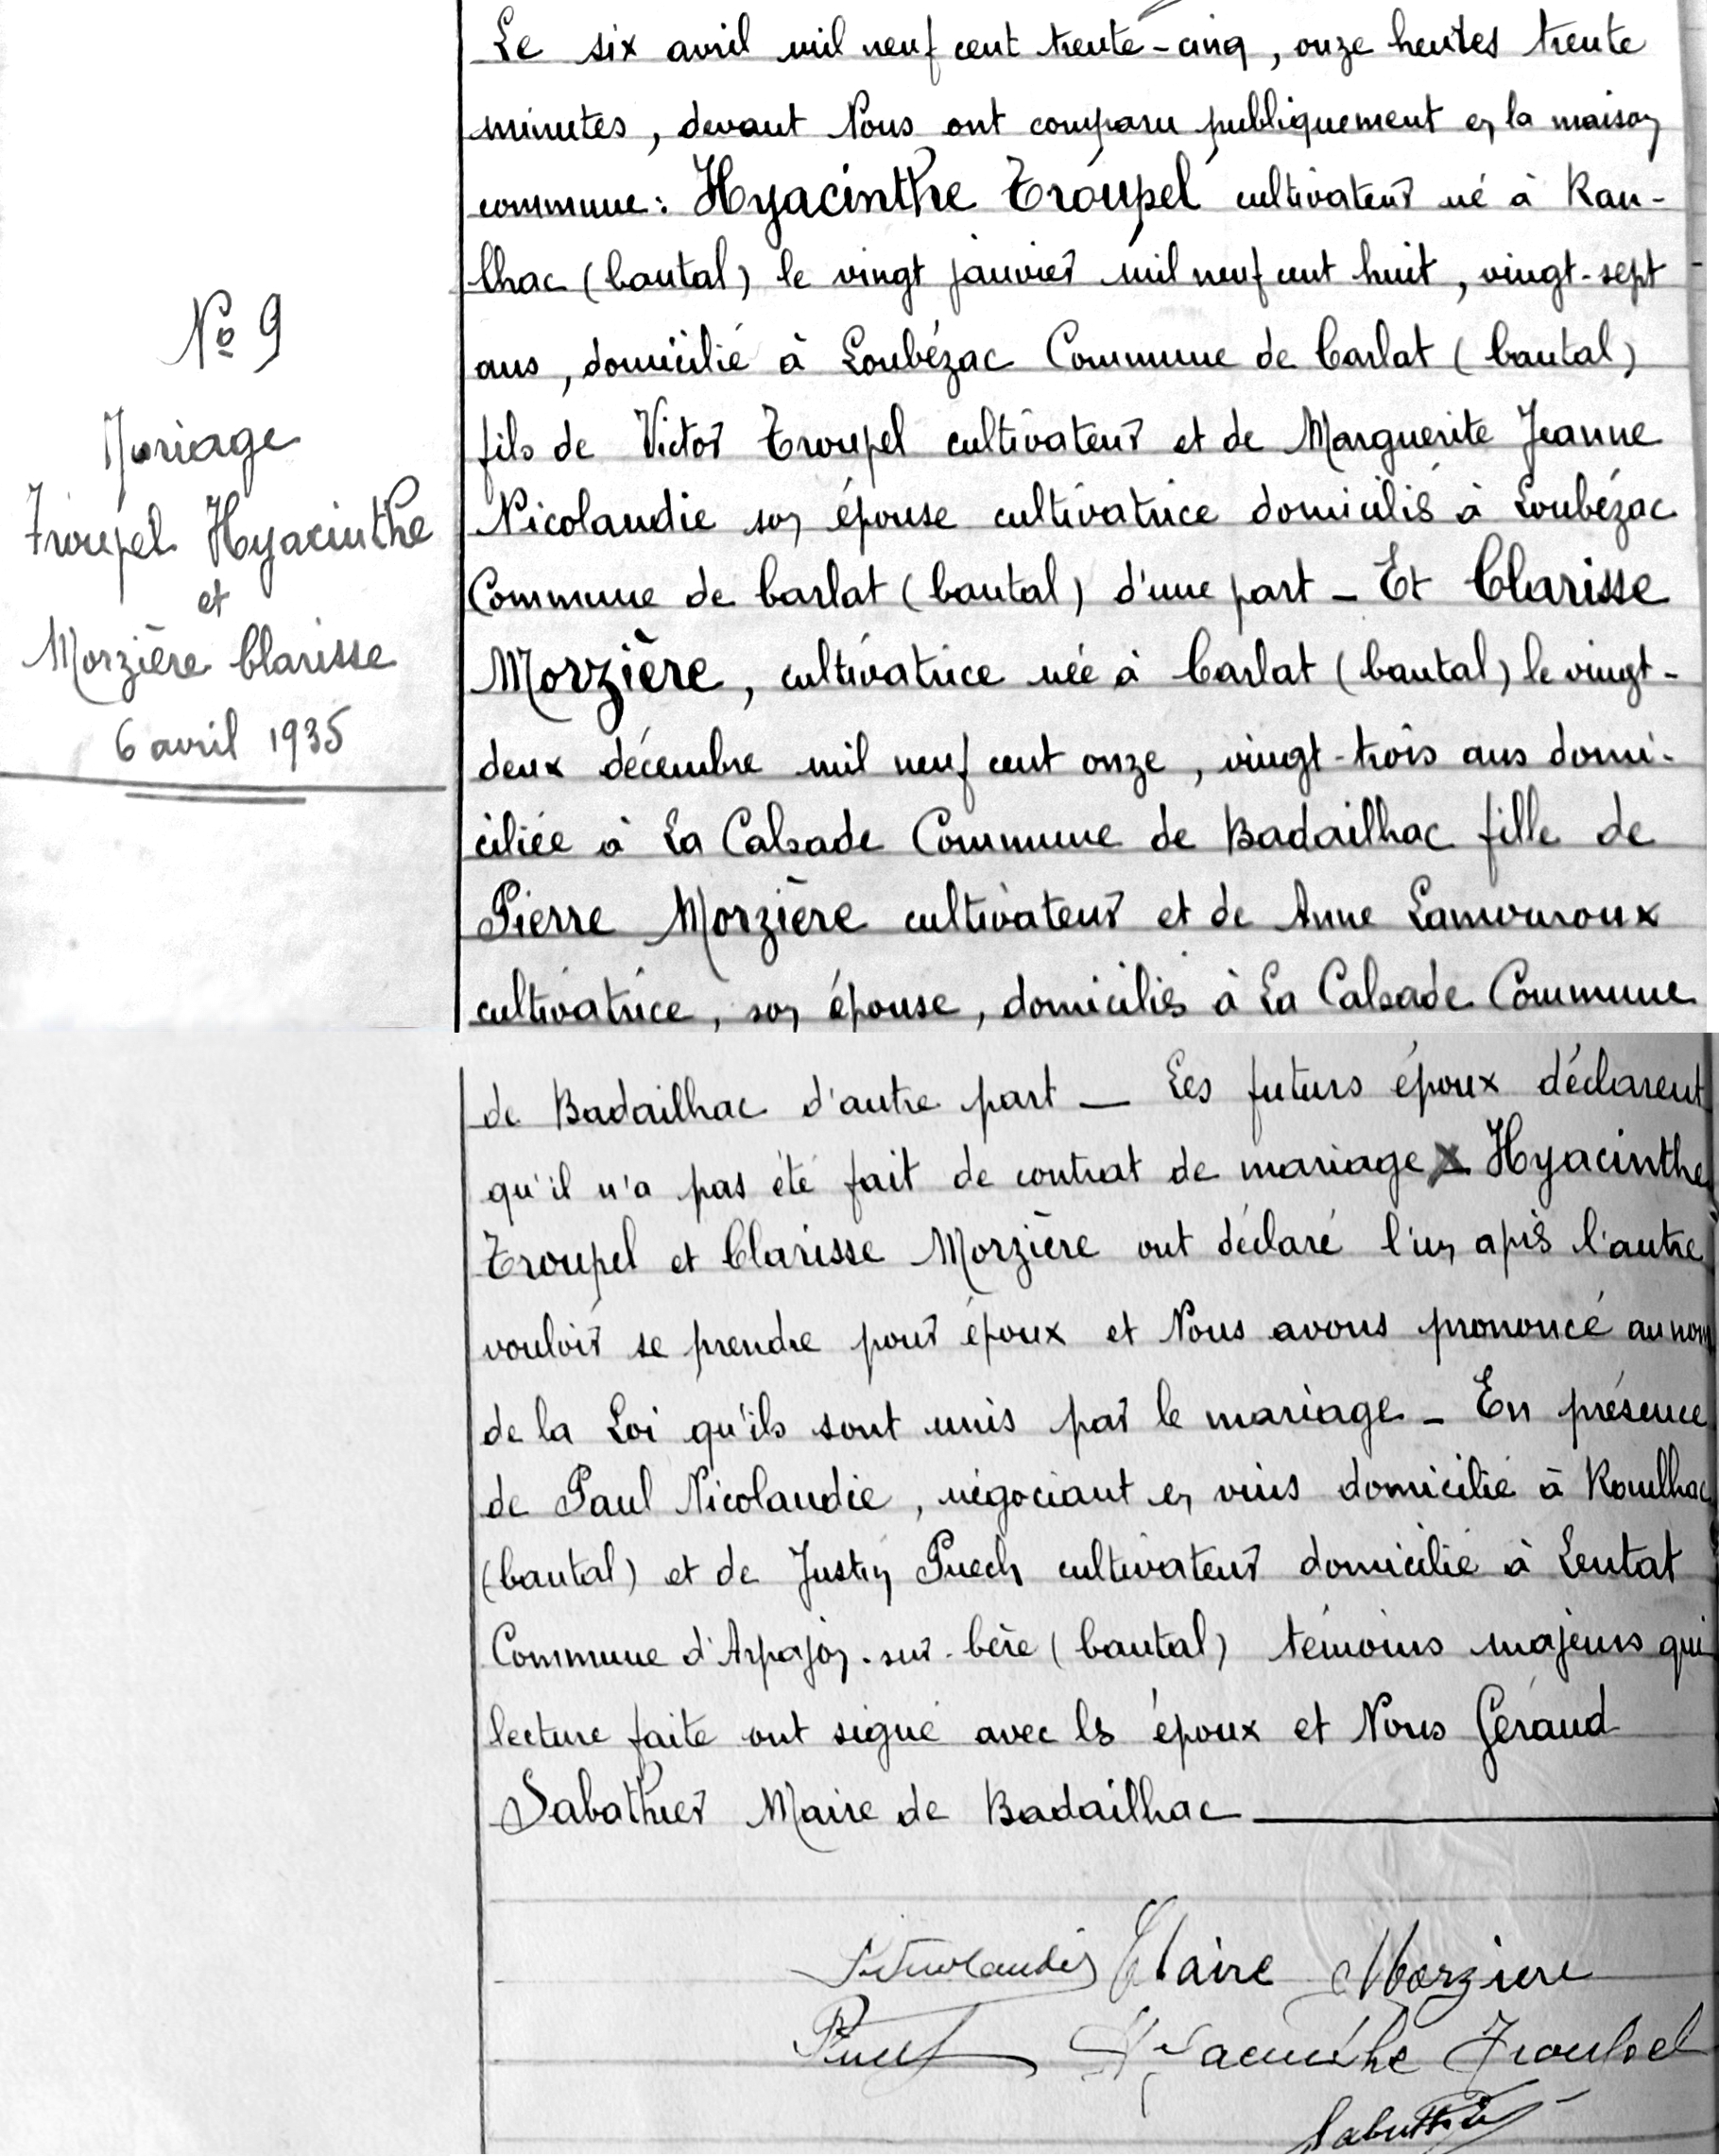 Le six avril mil neuf cent trente-cinq, onze heures trente
minutes, devant Nous ont comparu publiquement en la maison
commune: Hyacinthe Troupel cultivateur né à Rau-
lhac (Cantal) le vingt janvier mil neuf cent huit, vingt-sept
ans, domicilié à Loubézac Commune de Carlat (Cantal)
fils de Victor Troupel cultivateur et de Marguerite Jeanne
Nicolaudie son épouse cultivatrice domiciliés à Loubézac
Commune de Carlat (Cantal) d'une part - Et Clarisse
Morzière, cultivatrice née à Carlat (Cantal) le vingt-
deux décembre mil neuf cent onze, vingt-trois ans domi-
ciliée à La Calsade Commune de Badailhac fille de
Pierre Morzière cultivateur et de Anne Lamouroux
cultivatrice, son épouse, domiciliés à La Calsade Commune
de Badailhac d'autre part — Les futurs époux déclarent
qu'il n'a pas été fait de contrat de mariage Hyacinthe
Troupel et Clarisse Morzière ont déclaré l'un après l'autre
vouloir se prendre pour époux et Nous avons prononcé au nom
de la Loi qu'ils sont unis par le mariage - En présence
de Paul Nicolaudie, négociant en vins domicilié à Raulhac
(Cantal) et de Justin Puech cultivateur domicilié à Lentat
Commune d'Arpajon-sur-Cère (Cantal) témoins majeurs qui
lecture faite ont signé avec les époux et Nous Géraud
Sabathier Maire de Badailhac
Nicolaudie Claire Morziere
Puech Hyacinthe Troupel
Sabathier
N° 9
Mariage
Troupel Hyacinthe
et
Morzière Clarisse
6 avril 1935